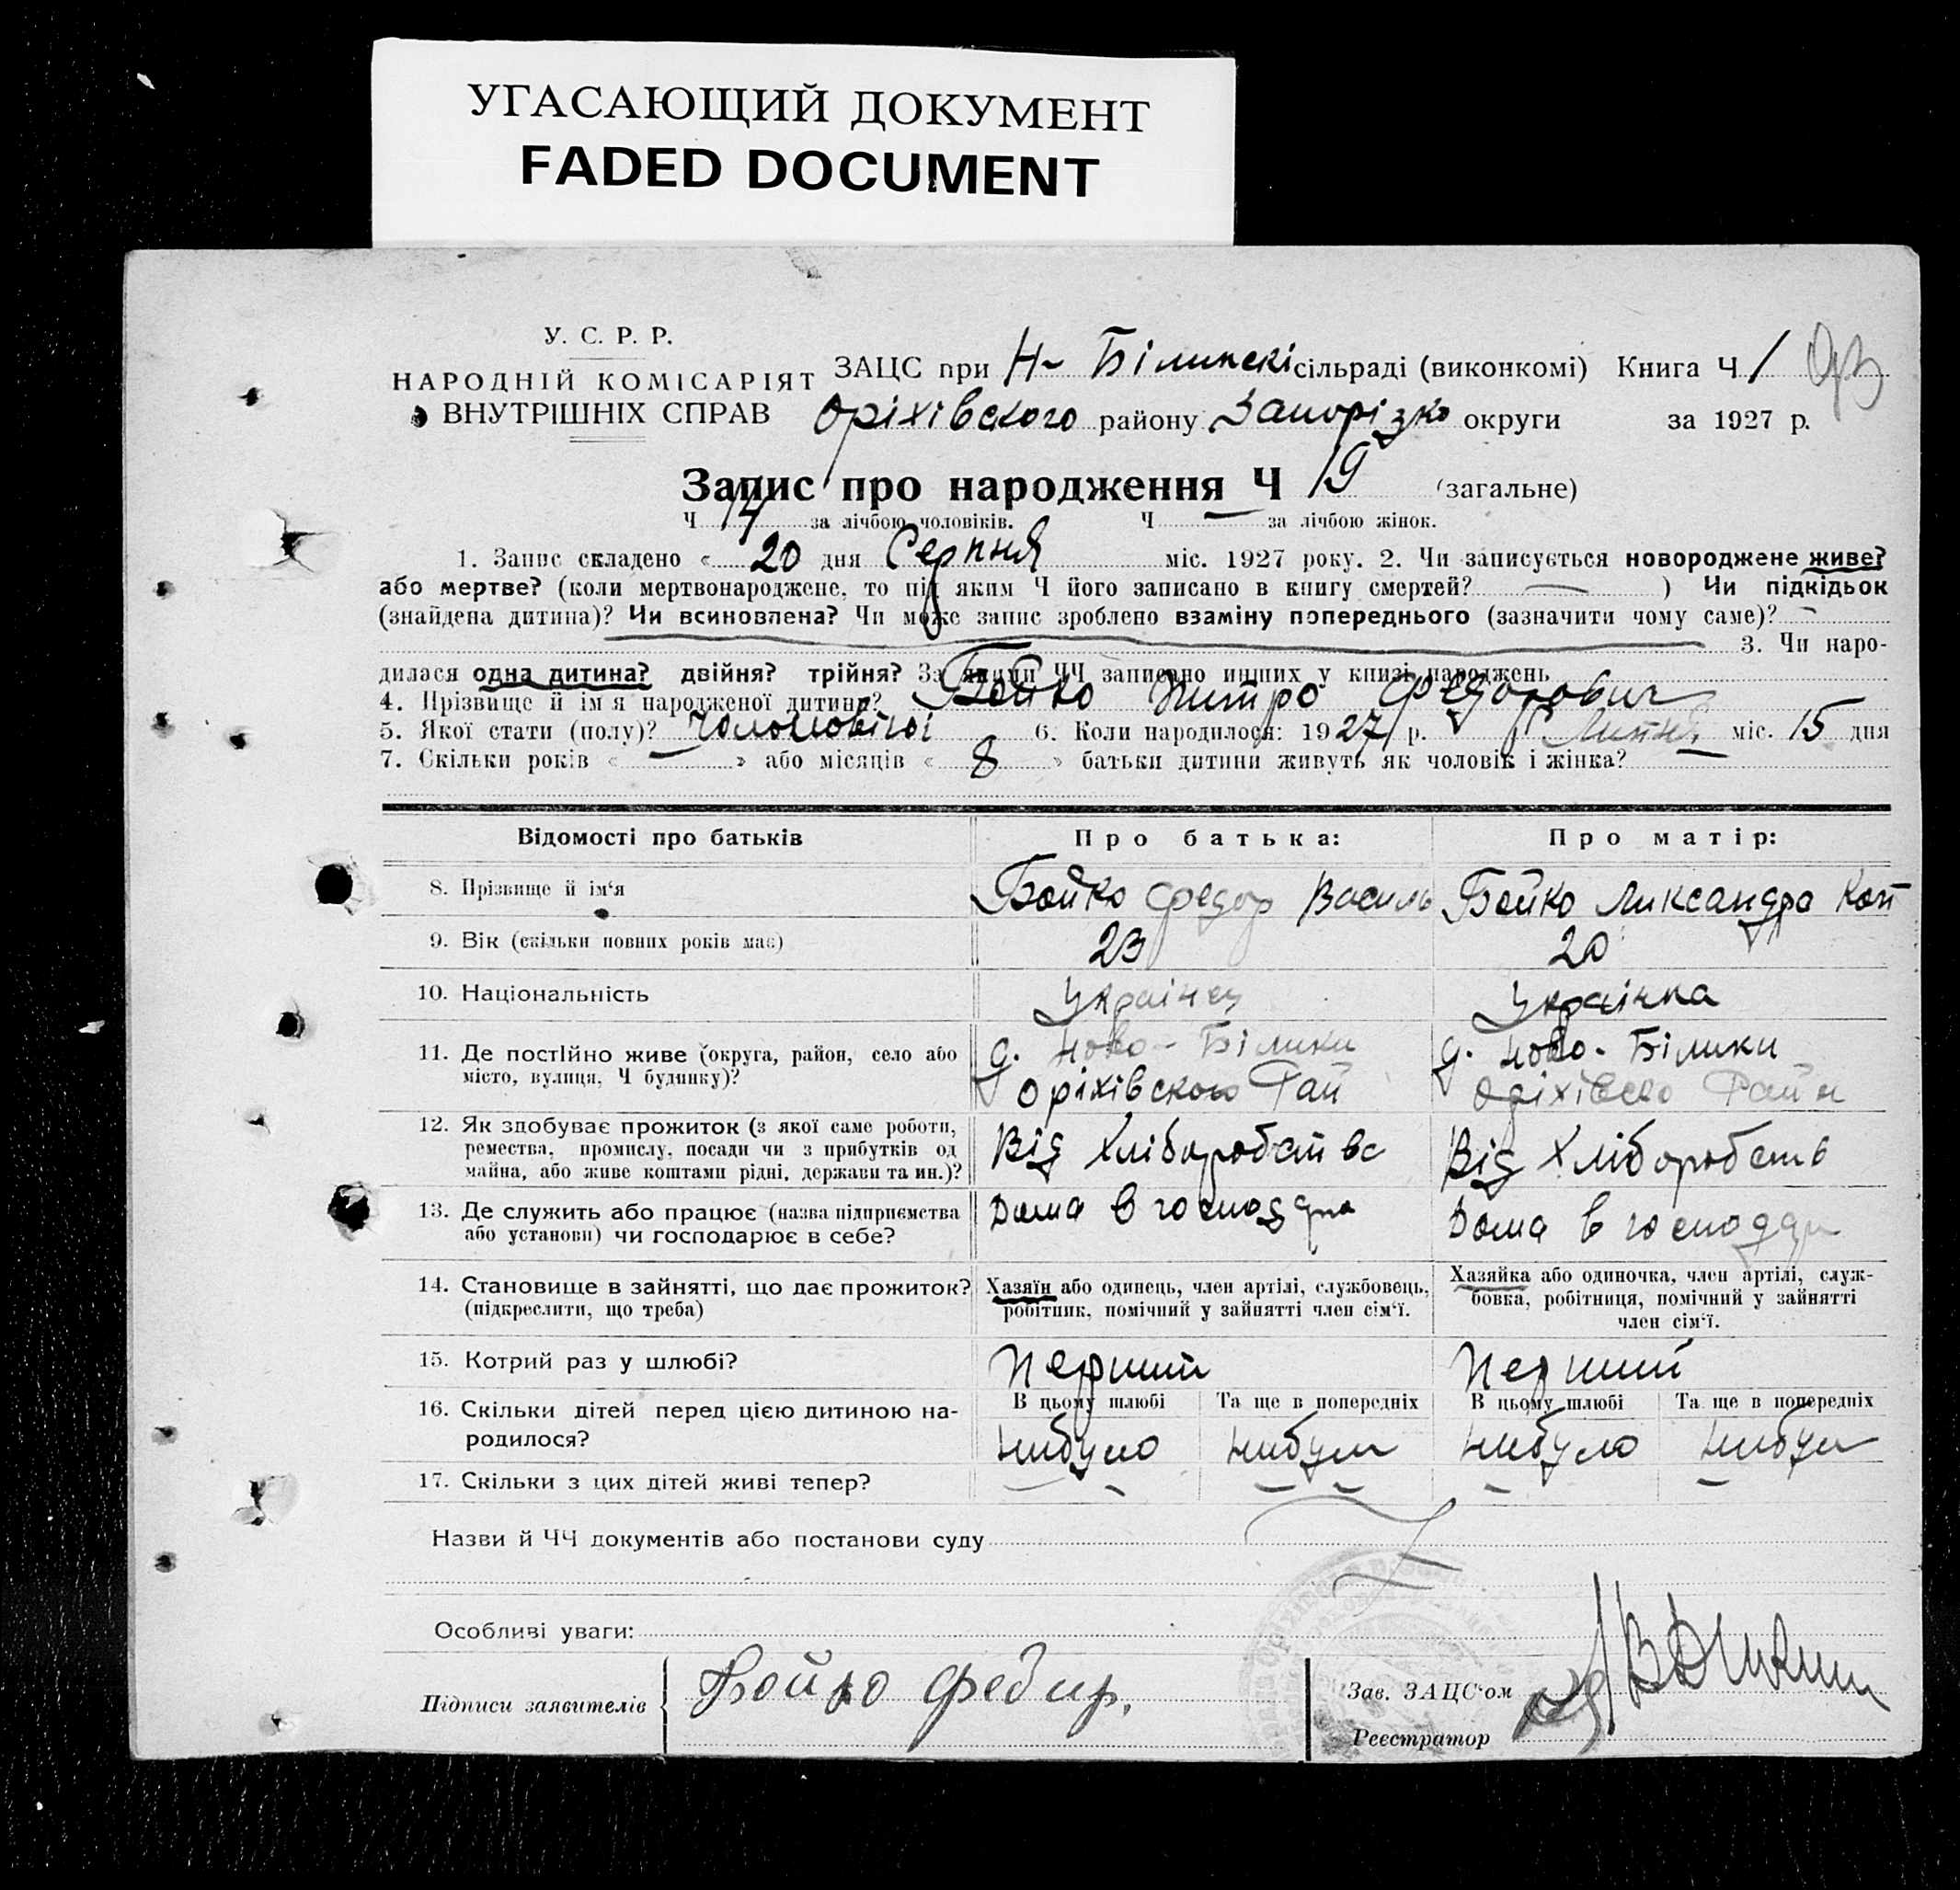 УГАСАЮЩИЙ ДОКУМЕНТ
FADED DOCUMENT
У. С. Р. Р.
НАРОДНІЙ КОМІСАРІЯТ
ВНУТРІШНІХ СПРАВ
ЗАЦС при Н- Білинскі сільраді (виконкомі) Книга Ч 1
Оріхівского району Запорізко округи за 1927 р.
Запис про народження Ч 19 (загальне)
Ч 14 за лічбою чоловіків. Ч — за лічбою жінок.
1. Запис складено « 20 дня Серпня міс. 1927 року. 2. Чи записується новороджене живе?
або мертве? (коли мертвонароджене, то під яким Ч його записано в книгу смертей? — ) Чи підкідьок
(знайдена дитина)? Чи всиновлена? Чи може запис зроблено взаміну попереднього (зазначити чому саме)? —
3. Чи наро-
дилася одна дитина? двійня? трійня? За якими ЧЧ записано инших у книзі народжень
4. Прізвище й ім я народженої дитини? Бойко Митро Федорович
5. Якої стати (полу)? Чоловічої 6. Коли народилося: 1927 р. Липня міс. 15 дня
7. Скільки років « — » або місяців « 8 » батьки дитини живуть як чоловік і жінка?
Відомості про батьків Про батька: Про матір:
8. Прізвище й ім‘я Бойко Федор Василь Бойко Ликсандра
9. Вік (скільки повних років має) 23 20
10. Національність Українец Українка
11. Де постійно живе (округа, район, село або
місто, вулиця, Ч будинку)?
д. Ново-Білики
Оріхівского Рай
д. Ново-Білики
Оріхівско Райн
12. Як здобуває прожиток (з якої саме роботи,
ремества, промислу, посади чи з прибутків од
майна, або живе коштами рідні, держави та ин.)?
Від Хліборобства
Від Хліборобств
13. Де служить або працює (назва підприємства
або установи) чи господарює в себе?
Дома в господар
Дома в господар
14. Становище в зайнятті, що дає прожиток?
(підкреслити, що треба)
Хазяїн або одинець, член артілі, службовець,
робітник, помічний у зайнятті член сім‘ї.
Хазяйка або одиночка, член артілі, служ-
бовка, робітниця, помічний у зайнятті
член сім‘ї.
15. Котрий раз у шлюбі? Перший Перший
16. Скільки дітей перед цією дитиною на-
родилося?
В цьому шлюбі Та ще в попередніх В цьому шлюбі Та ще в попередніх
Нибуло Нибул Нибуло Нибул
17. Скільки з цих дітей живі тепер? — — — —
Назви й ЧЧ документів або постанови суду
Особливі уваги:
Підписи заявителів Бойко Федир.
Зав. ЗАЦС‘ом
Реєстратор